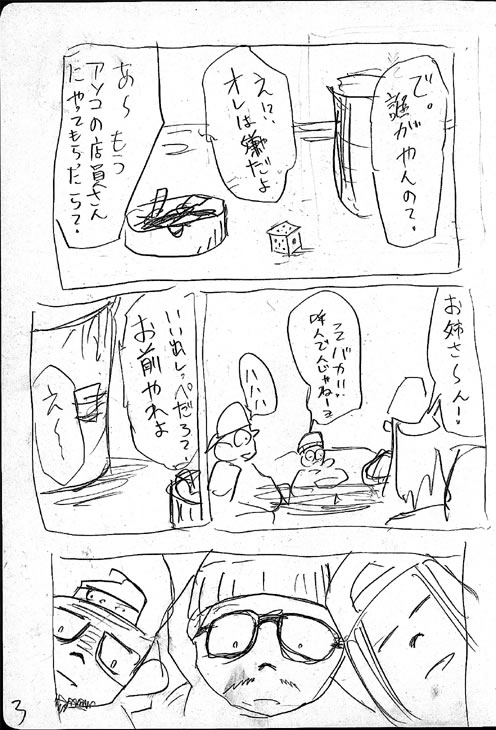 で。
誰がやんの?
え!?
オレは嫌だよ
あ〜もう
アソコの店員さん
にやってもらったらって?
お姉さ〜ん!
呼んでんじゃねーよ
ハハハ
お前やれよ
え〜
3